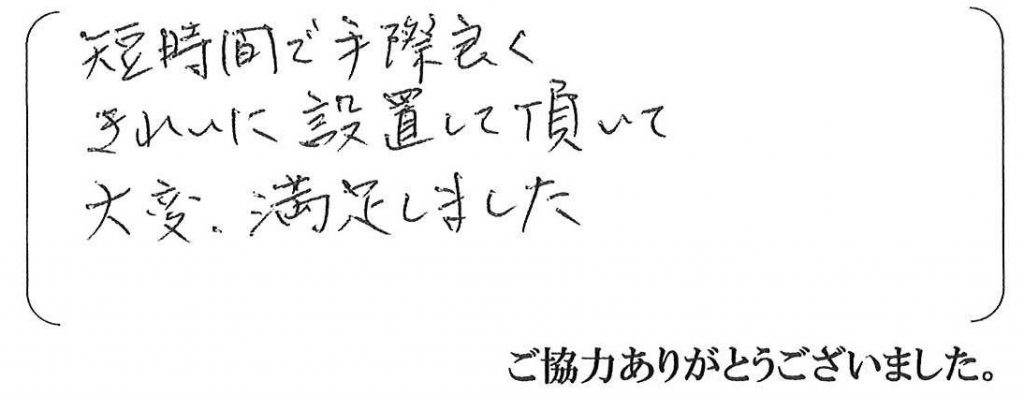 短時間で手際良く
きれいに設置して頂いて
大変、満足しました
ご協力ありがとうございました。